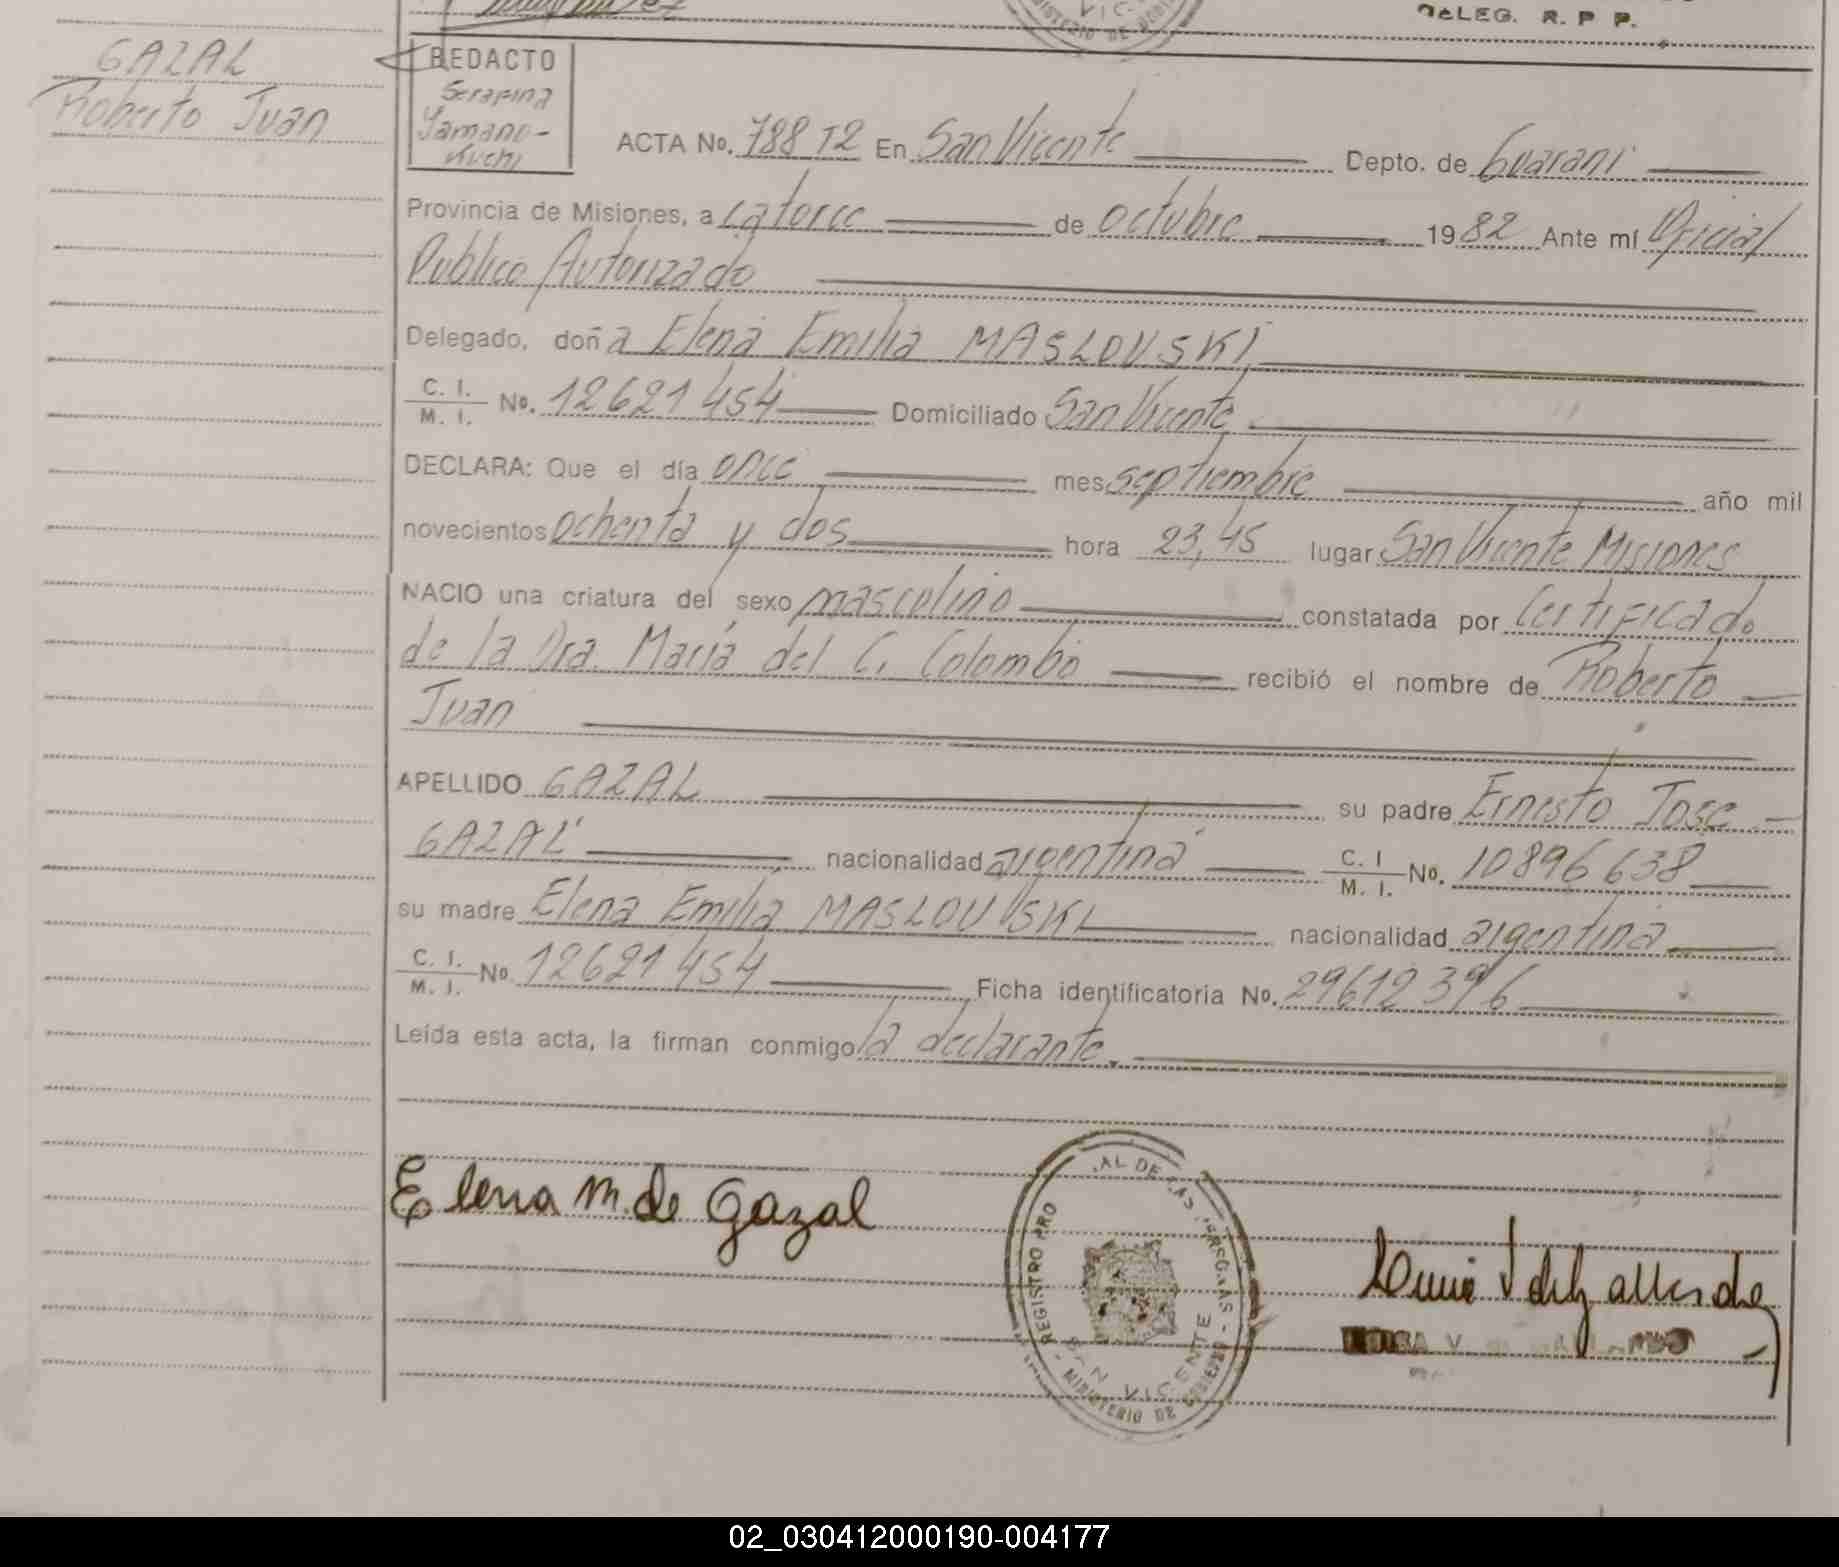 DELEG. R. P P.
GAZAL
Roberto Juan
REDACTO
Serafina
Yamano-
Kuchi
ACTA No. 788 T2 En San Vicente Depto. de Guarani
Provincia de Misiones, a catorce de octubre 1982 Ante mí Oficial
Publico Autorizado
Delegado, doña Elena Emilia MASLOVSKI
C. I. / M. I. No. 12621454 Domiciliado San Vicente
DECLARA: Que el día once mes septiembre año mil
novecientos ochenta y dos hora 23,45 lugar San Vicente Misiones
NACIO una criatura del sexo masculino constatada por Certificado
de la Dra. María del C. Colombo recibió el nombre de Roberto
Juan
APELLIDO GAZAL su padre Ernesto Jose
GAZAL nacionalidad argentina C. I / M. I. No. 10896638
su madre Elena Emilia MASLOVSKI nacionalidad argentina
C. I. / M. I. No. 12621454 Ficha identificatoria No. 29612396
Leída esta acta, la firman conmigo la declarante.
Elena M. de Gazal
REGISTRO PRO AL DE LAS PERSONAS - MINISTERIO DE GOBIERNO -
SAN VICENTE
02_030412000190-004177